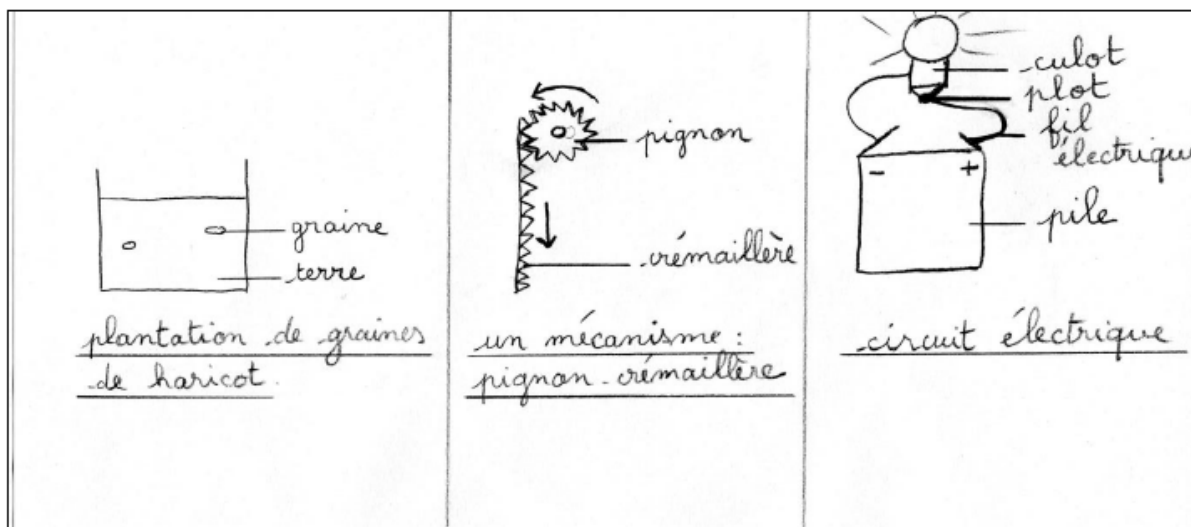 graine
terre
plantation de graines
de haricot.
pignon
crémaillère
un mécanisme :
pignon-crémaillère
culot
plot
fil
électrique
- +
pile
circuit électrique